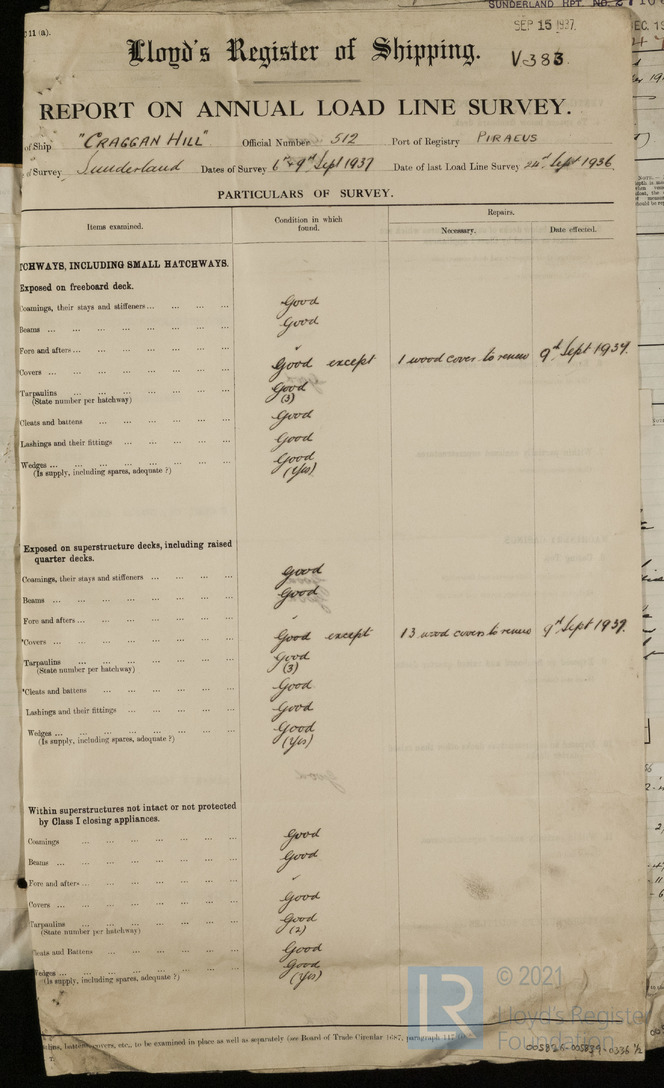 SUNDERLAND RPT. No.
11 (a).
SEP 15 1937
Lloyd's Register of Shipping.
V383
REPORT ON ANNUAL LOAD LINE SURVEY.
of Ship "CRAGGAN HILL" Official Number 512 Port of Registry PIRAEUS
Survey Sunderland Dates of Survey 6th & 9th Sept 1937 Date of last Load Line Survey 24th Sept 1936.
PARTICULARS OF SURVEY.
Items examined. Condition in which found. Repairs. Necessary. Date effected.
TCHWAYS, INCLUDING SMALL HATCHWAYS.
Exposed on freeboard deck.
Coamings, their stays and stiffeners ... ... ... ... Good
Beams ... ... ... ... ... ... ... Good
Fore and afters ... ... ... ... ... ... ✓
Covers ... ... ... ... ... ... ... Good except 1 wood cover to renew 9th Sept 1937.
Tarpaulins ... ... ... ... ... ... Good
(State number per hatchway) (3)
Cleats and battens ... ... ... ... ... Good
Lashings and their fittings ... ... ... ... ... Good
Wedges ... ... ... ... ... ... ... Good
(Is supply, including spares, adequate ?) (Yes)
Exposed on superstructure decks, including raised
quarter decks.
Coamings, their stays and stiffeners ... ... ... ... Good
Beams ... ... ... ... ... ... ... Good
Fore and afters ... ... ... ... ... ... ✓
*Covers ... ... ... ... ... ... ... Good except 13 wood covers to renew 9th Sept 1937.
Tarpaulins ... ... ... ... ... ... Good
(State number per hatchway) (3)
*Cleats and battens ... ... ... ... ... Good
Lashings and their fittings ... ... ... ... ... Good
Wedges ... ... ... ... ... ... ... Good
(Is supply, including spares, adequate ?) (Yes)
Within superstructures not intact or not protected
by Class I closing appliances.
Coamings ... ... ... ... ... ... Good
Beams ... ... ... ... ... ... ... Good
Fore and afters ... ... ... ... ... ... ✓
Covers ... ... ... ... ... ... ... Good
Tarpaulins ... ... ... ... ... ... Good
(State number per hatchway) (2)
Cleats and Battens ... ... ... ... ... Good
Wedges ... ... ... ... ... ... ... Good
(Is supply, including spares, adequate ?) (Yes)
covers, etc., to be examined in place as well as separately (see Board of Trade Circular 1687, paragraph 117
LR
© 2021
Lloyd's Register
Foundation
005826-005839-0336 1/2